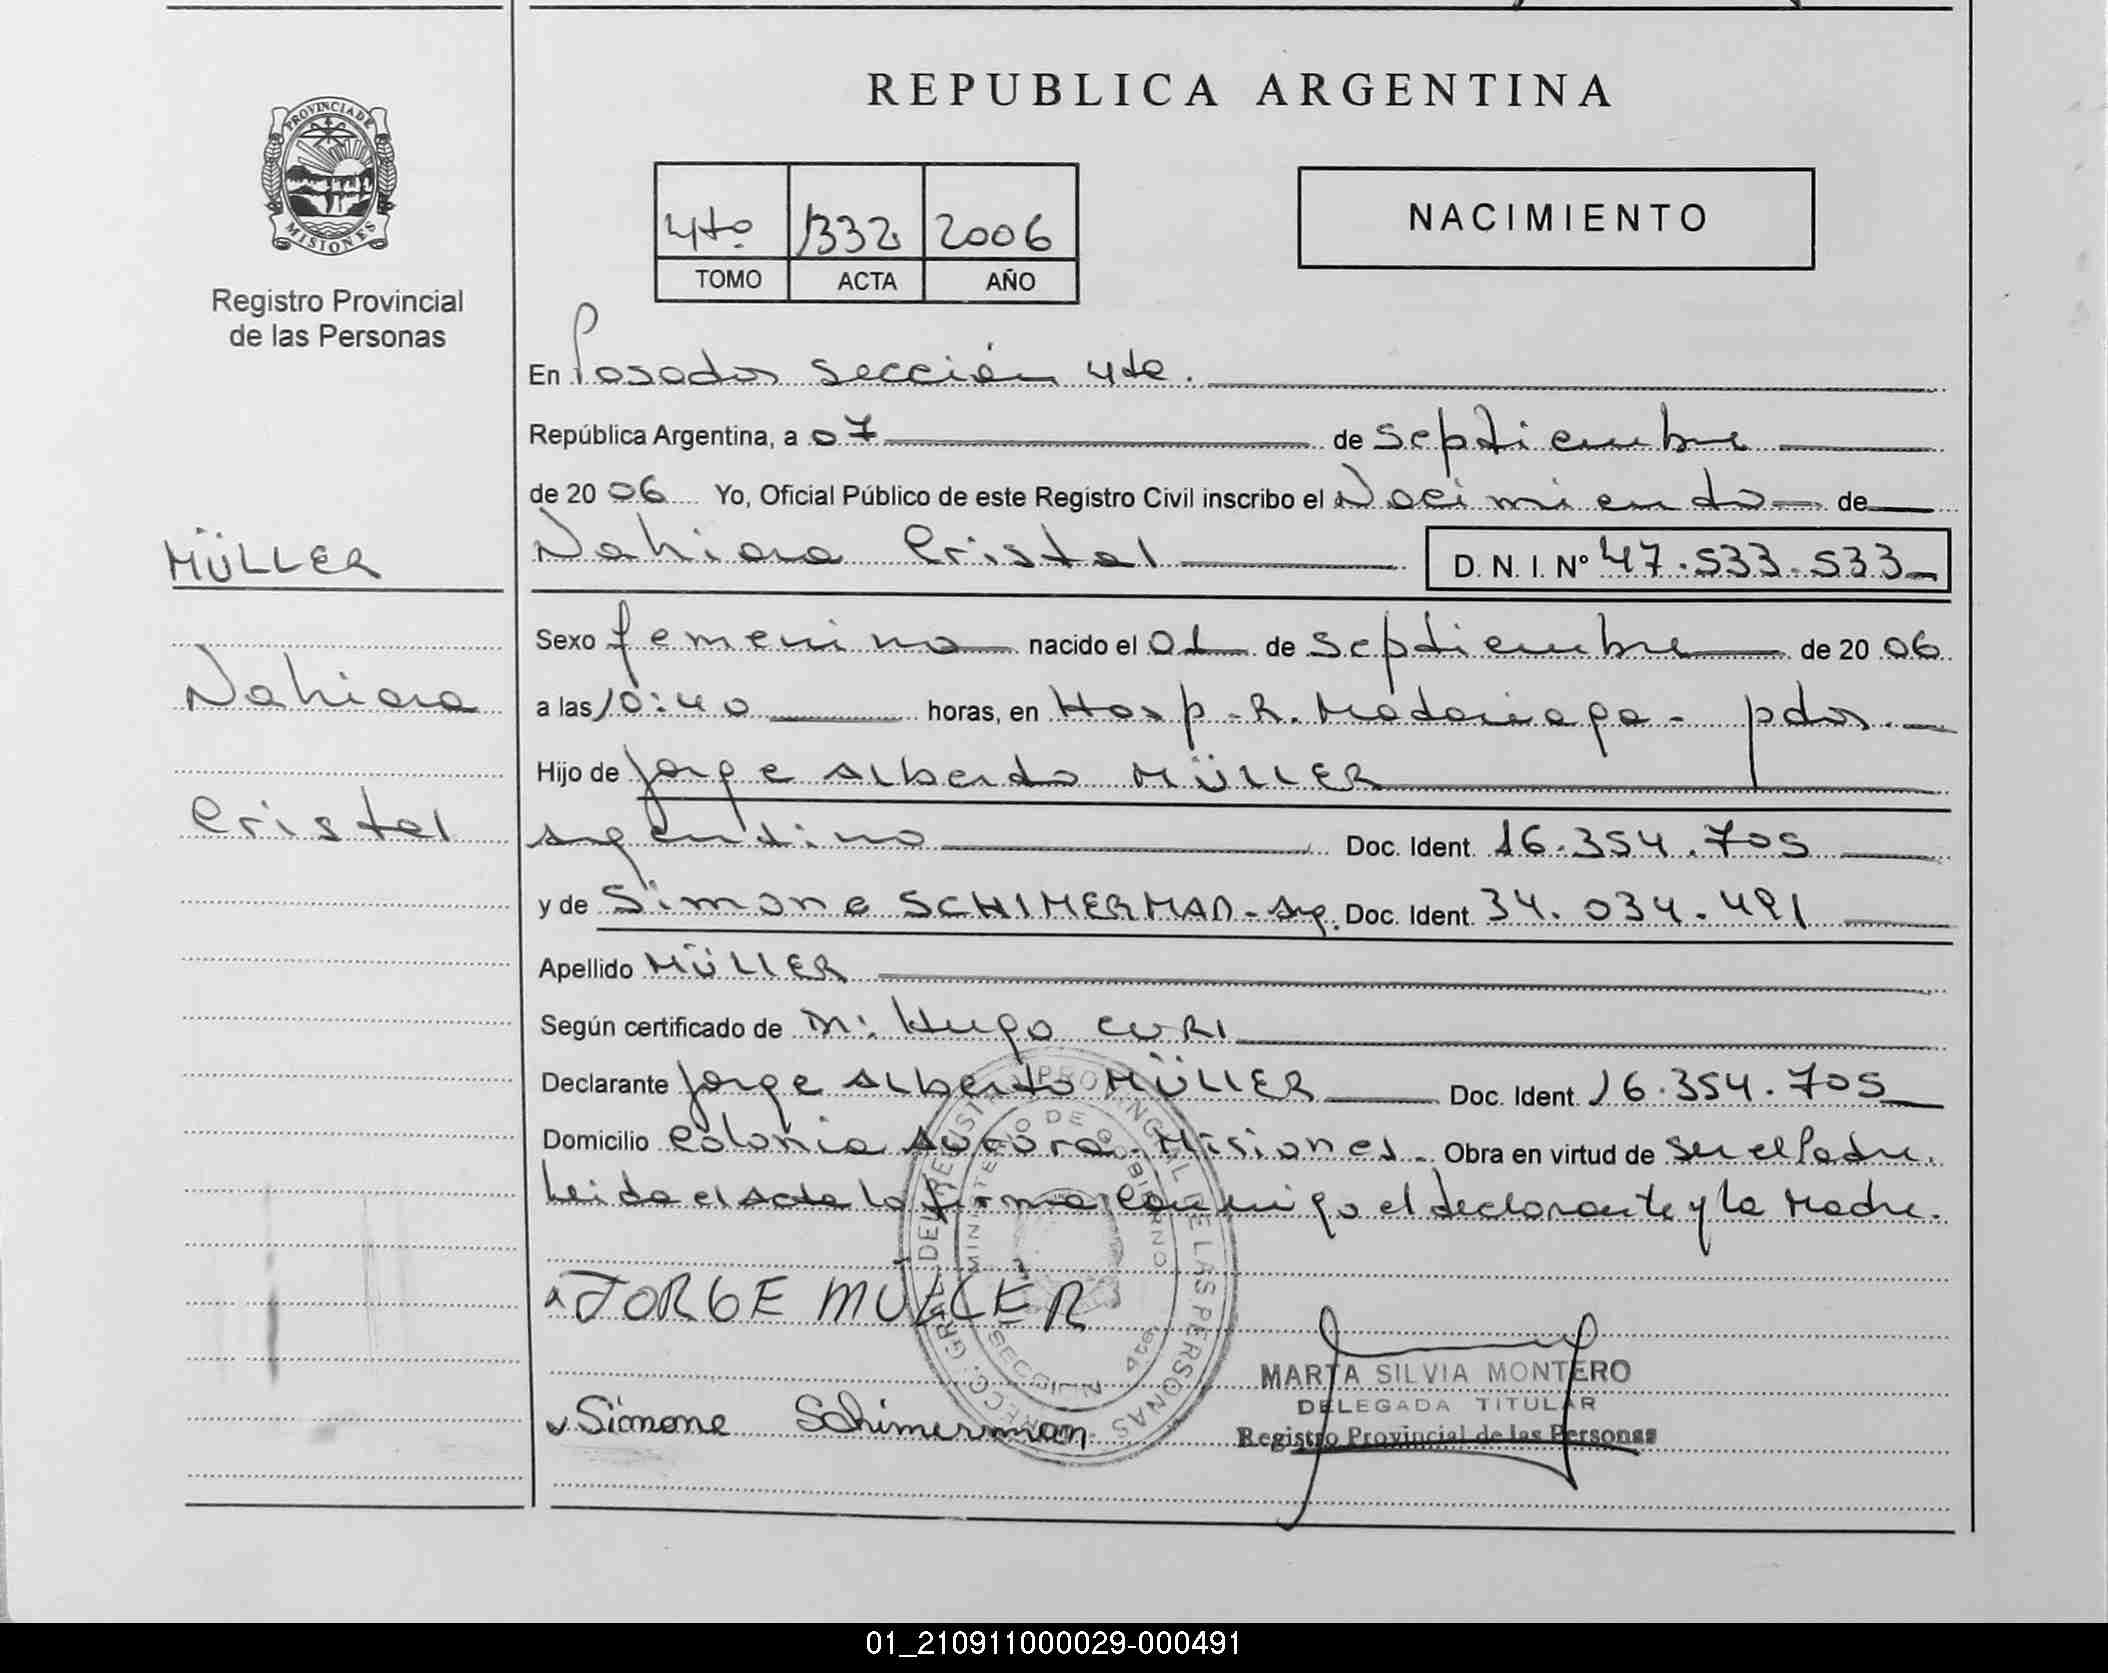 PROVINCIA DE
MISIONES
Registro Provincial
de las Personas
REPUBLICA ARGENTINA
4to 1332 2006
TOMO ACTA AÑO
NACIMIENTO
En Posadas sección 4ta.
República Argentina, a 07 de septiembre
de 20 06 Yo, Oficial Público de este Registro Civil inscribo el Nacimiento de
MÜLLER
Nahiara Cristal D. N. I. Nº 47.533.533
Nahiara
Cristal
Sexo femenino nacido el 01 de septiembre de 20 06
a las 10:40 horas, en Hosp. R. Madariaga - pdas.
Hijo de Jorge Alberto MÜLLER
argentino Doc. Ident. 16.354.705
y de Simone SCHIMERMAN - arg. Doc. Ident. 34.034.491
Apellido MÜLLER
Según certificado de Dr: Hugo CURI
Declarante Jorge Alberto MÜLLER Doc. Ident. 16.354.705
Domicilio Colonia Aurora - Misiones. Obra en virtud de ser el Padre.
Leida el acta la firma conmigo el declarante y la Madre.
JORGE MULLER
Simone Schimerman
DIRECC. GRAL. DEL REGISTRO PROVINCIAL DE LAS PERSONAS
MINISTERIO DE GOBIERNO
SECCION 4ta.
MARTA SILVIA MONTERO
DELEGADA TITULAR
Registro Provincial de las Personas
01_210911000029-000491